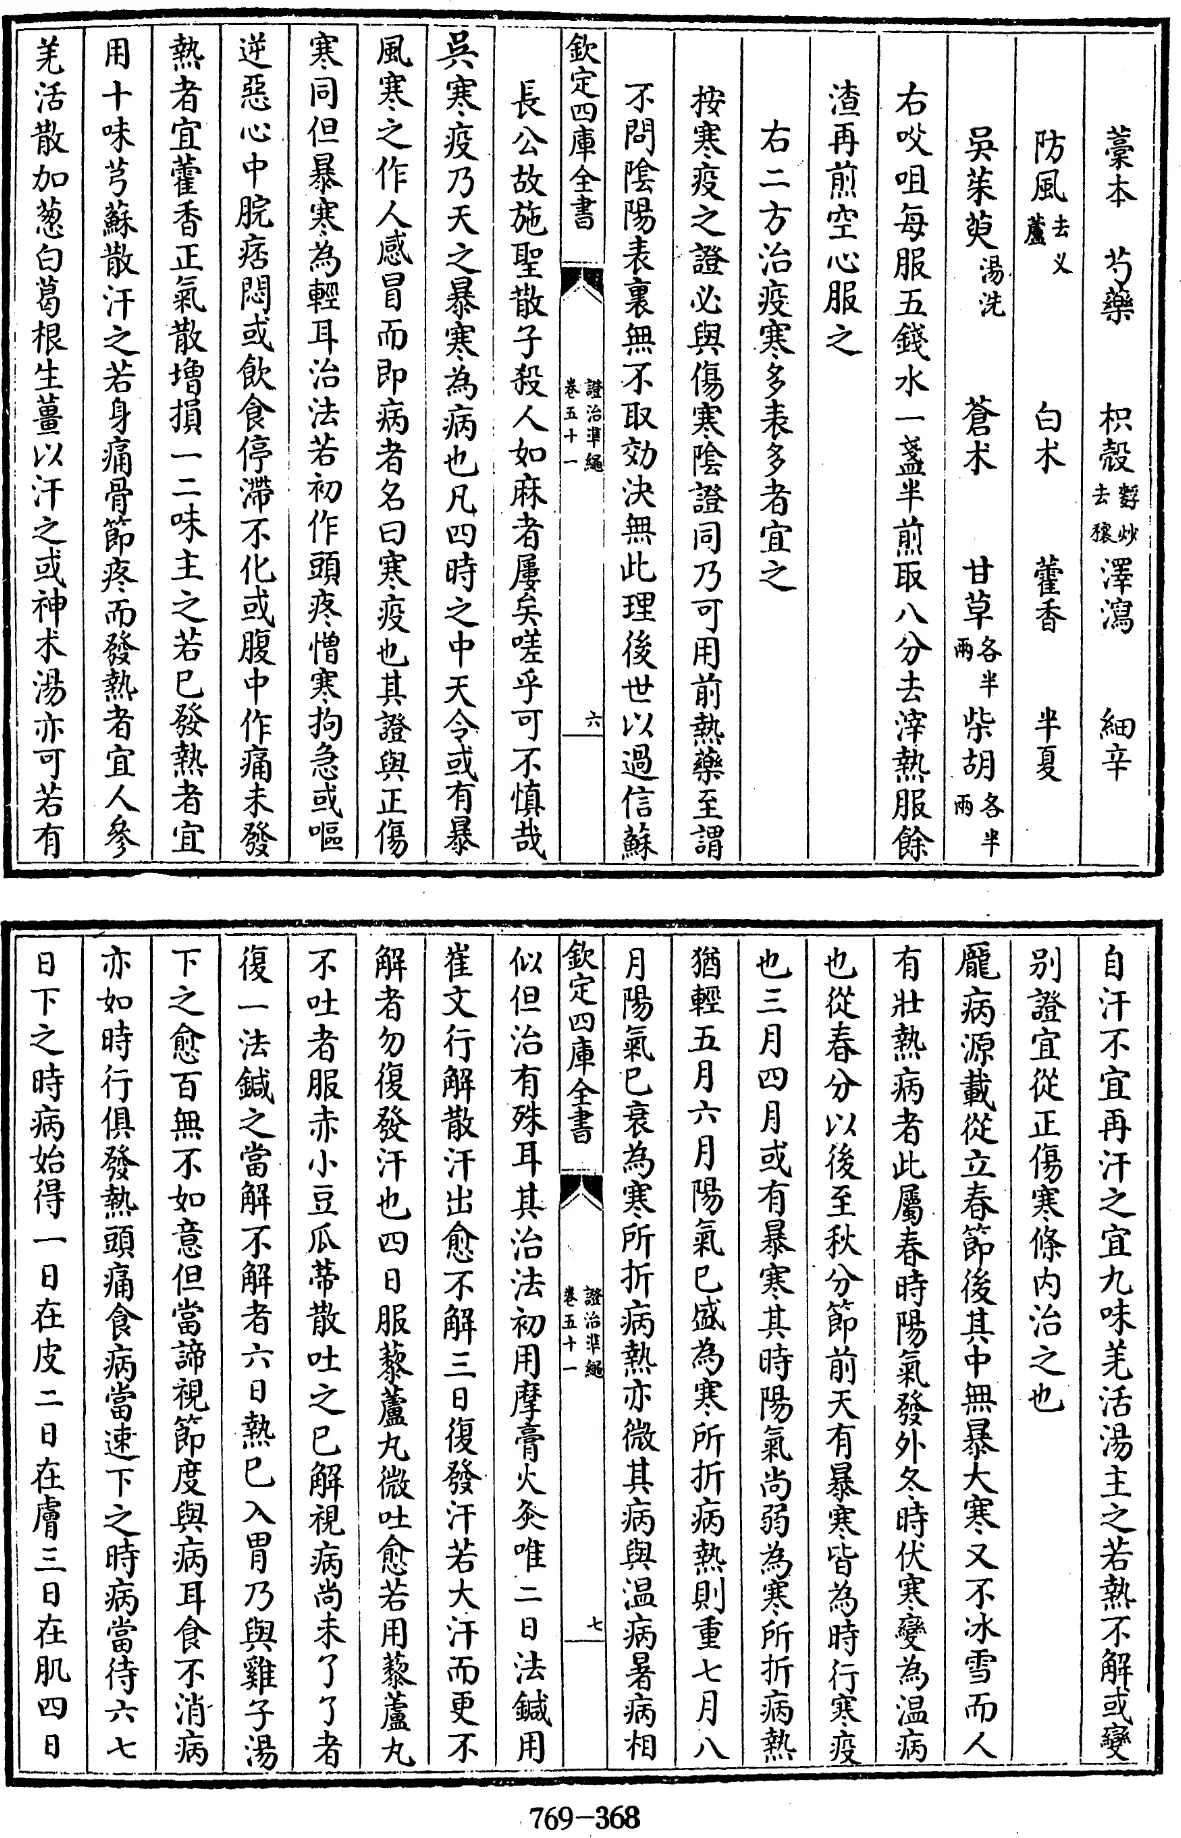 藁本　芍藥　枳殼麩炒去穰澤瀉　細辛
防風去蘆乂　白朮　藿香　半夏
吳茱萸湯洗　蒼朮　甘草各半兩柴胡各半兩
右㕮咀每服五錢水一盞半煎取八分去滓熱服餘
渣再煎空心服之
右二方治疫寒多表多者宜之
按寒疫之證必與傷寒陰證同乃可用前熱藥至謂
不問陰陽表裏無不取効決無此理後世以過信蘇
欽定四庫全書　證治準繩卷五十一　六
長公故施聖散子殺人如麻者屢矣嗟乎可不慎哉
吳寒疫乃天之暴寒為病也凡四時之中天令或有暴
風寒之作人感冒而即病者名曰寒疫也其證與正傷
寒同但暴寒為輕耳治法若初作頭疼憎寒拘急或嘔
逆惡心中脘痞悶或飲食停滯不化或腹中作痛未發
熱者宜藿香正氣散増損一二味主之若已發熱者宜
用十味芎蘇散汗之若身痛骨節疼而發熱者宜人參
羌活散加葱白葛根生薑以汗之或神朮湯亦可若有
自汗不宜再汗之宜九味羌活湯主之若熱不解或變
别證宜從正傷寒條内治之也
龎病源載從立春節後其中無暴大寒又不冰雪而人
有壯熱病者此屬春時陽氣發外冬時伏寒變為温病
也從春分以後至秋分節前天有暴寒皆為時行寒疫
也三月四月或有暴寒其時陽氣尚弱為寒所折病熱
猶輕五月六月陽氣已盛為寒所折病熱則重七月八
月陽氣已衰為寒所折病熱亦微其病與温病暑病相
欽定四庫全書　證治準繩卷五十一　七
似但治有殊耳其治法初用摩膏火灸唯二日法鍼用
崔文行解散汗出愈不解三日復發汗若大汗而更不
解者勿復發汗也四日服藜蘆丸微吐愈若用藜蘆丸
不吐者服赤小豆瓜蒂散吐之已解視病尚未了了者
復一法鍼之當解不解者六日熱已入胃乃與雞子湯
下之愈百無不如意但當諦視節度與病耳食不消病
亦如時行俱發熱頭痛食病當速下之時病當待六七
日下之時病始得一日在皮二日在膚三日在肌四日
769-368